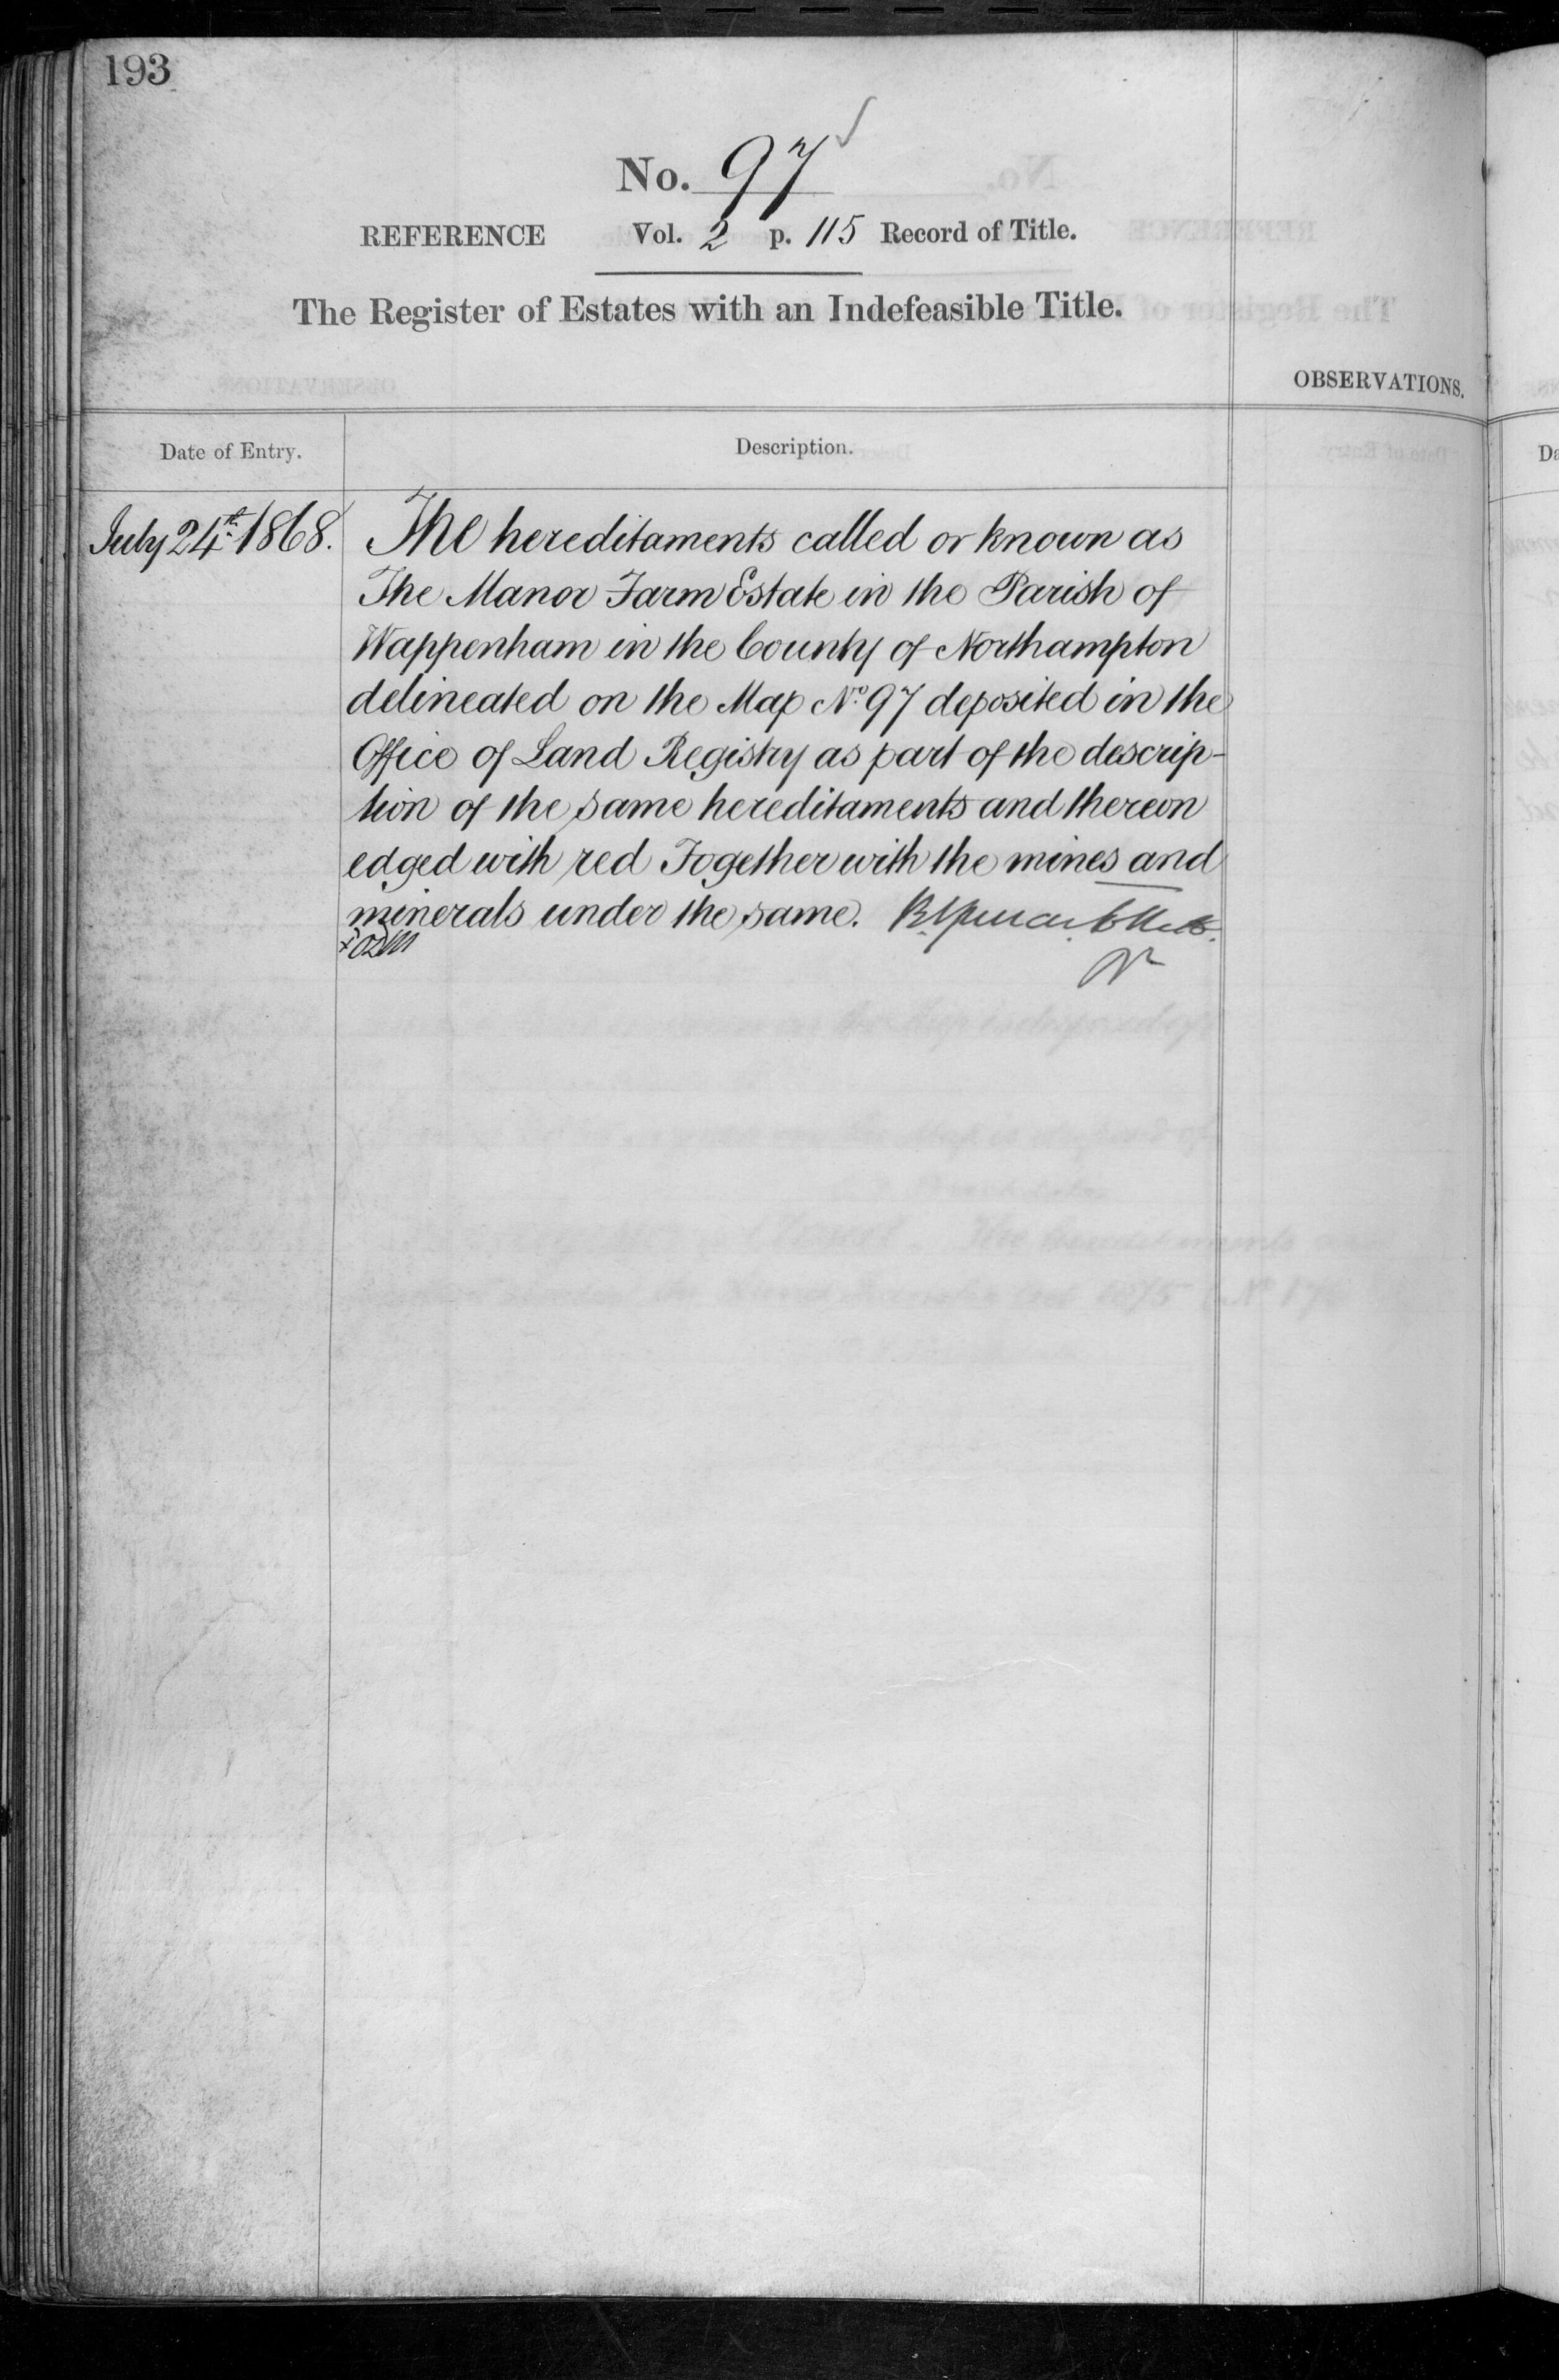 193
No. 97
REFERENCE Vol. 2 p. 115 Record of Title.
The Register of Estates with an Indefeasible Title.
OBSERVATIONS.
Date of Entry.
Description.
July 24th 1868.
The hereditaments called or known as
The Manor Farm Estate in the Parish of
Wappenham in the County of Northampton
delineated on the Map No. 97 deposited in the
Office of Land Registry as part of the descrip-
tion of the same hereditaments and thereon
edged with red Together with the mines and
minerals under the same.
Da